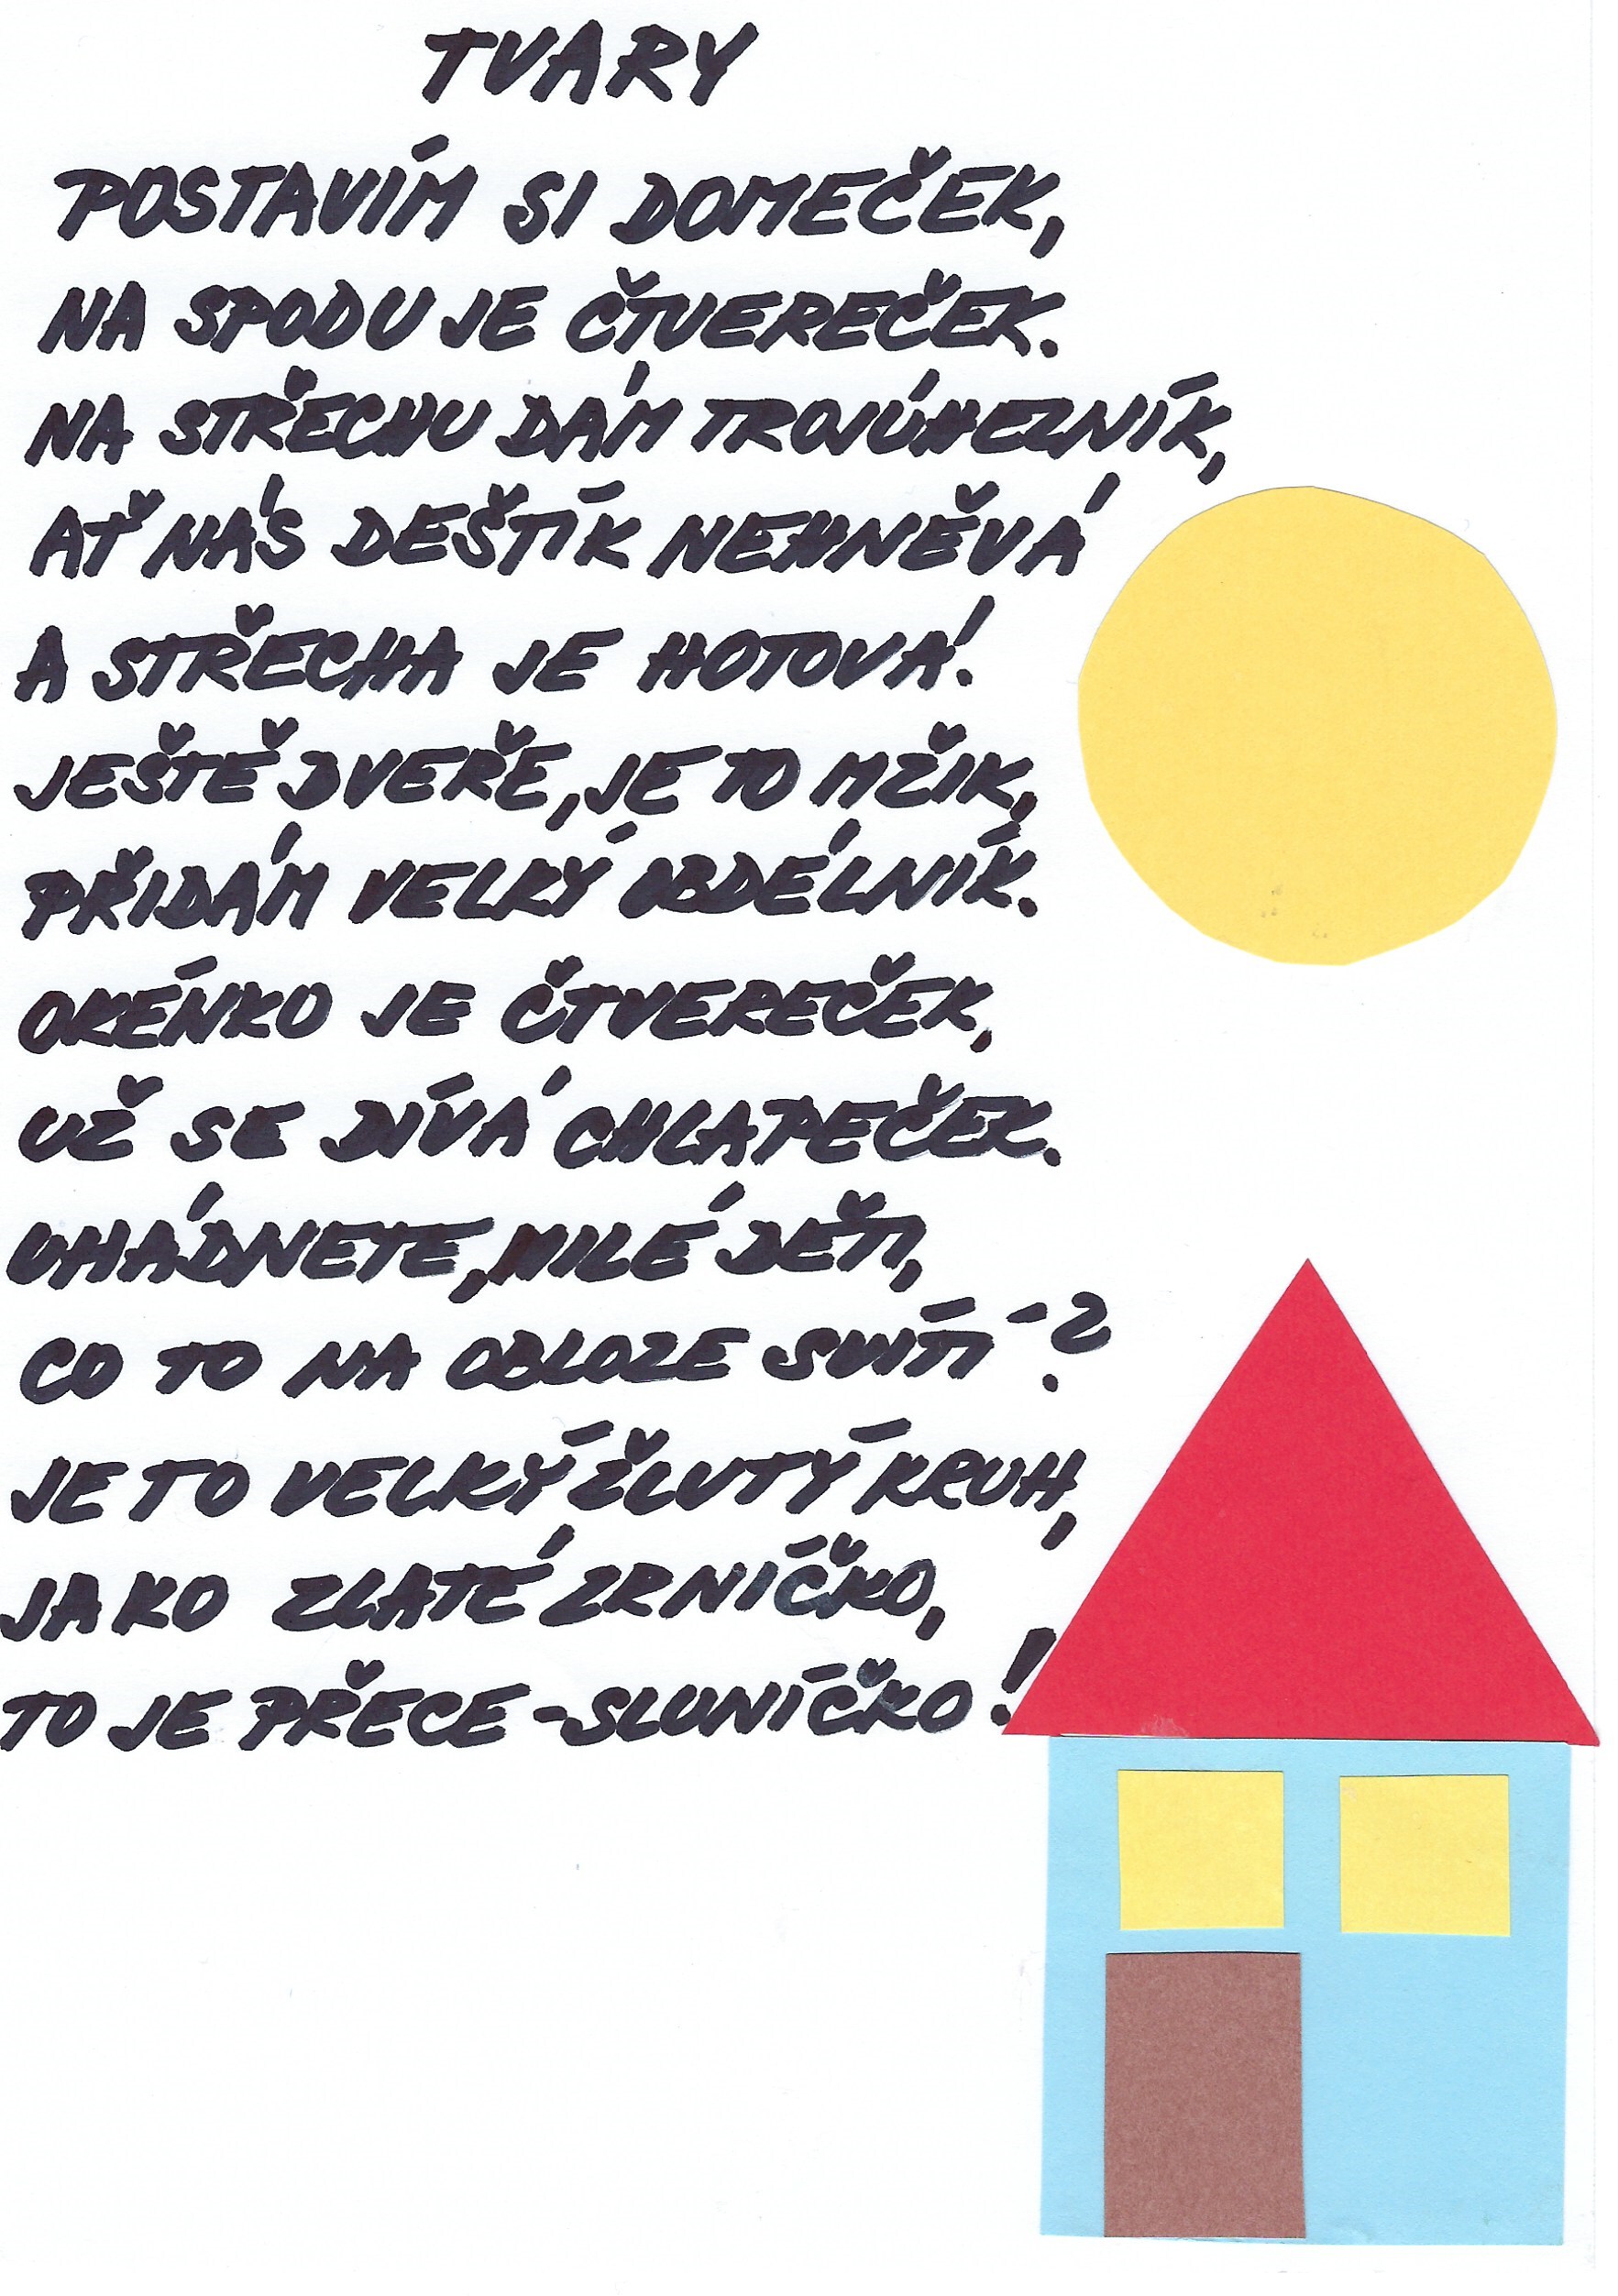 TVARY
POSTAVÍM SI DOMEČEK,
NA SPODU JE ČTVEREČEK.
NA STŘECHU DÁM TROJÚHELNÍK,
AŤ NÁS DEŠTÍK NEHNĚVÁ
A STŘECHA JE HOTOVÁ!
JEŠTĚ DVEŘE, JE TO MŽIK,
PŘIDÁM VELKÝ OBDÉLNÍK.
OKÉNKO JE ČTVEREČEK,
UŽ SE DÍVÁ CHLAPEČEK.
UHÁDNETE, MILÉ DĚTI,
CO TO NA OBLOZE SVÍTÍ-?
JE TO VELKÝ ŽLUTÝ KRUH,
JAKO ZLATÉ ZRNÍČKO,
TO JE PŘECE - SLUNÍČKO!